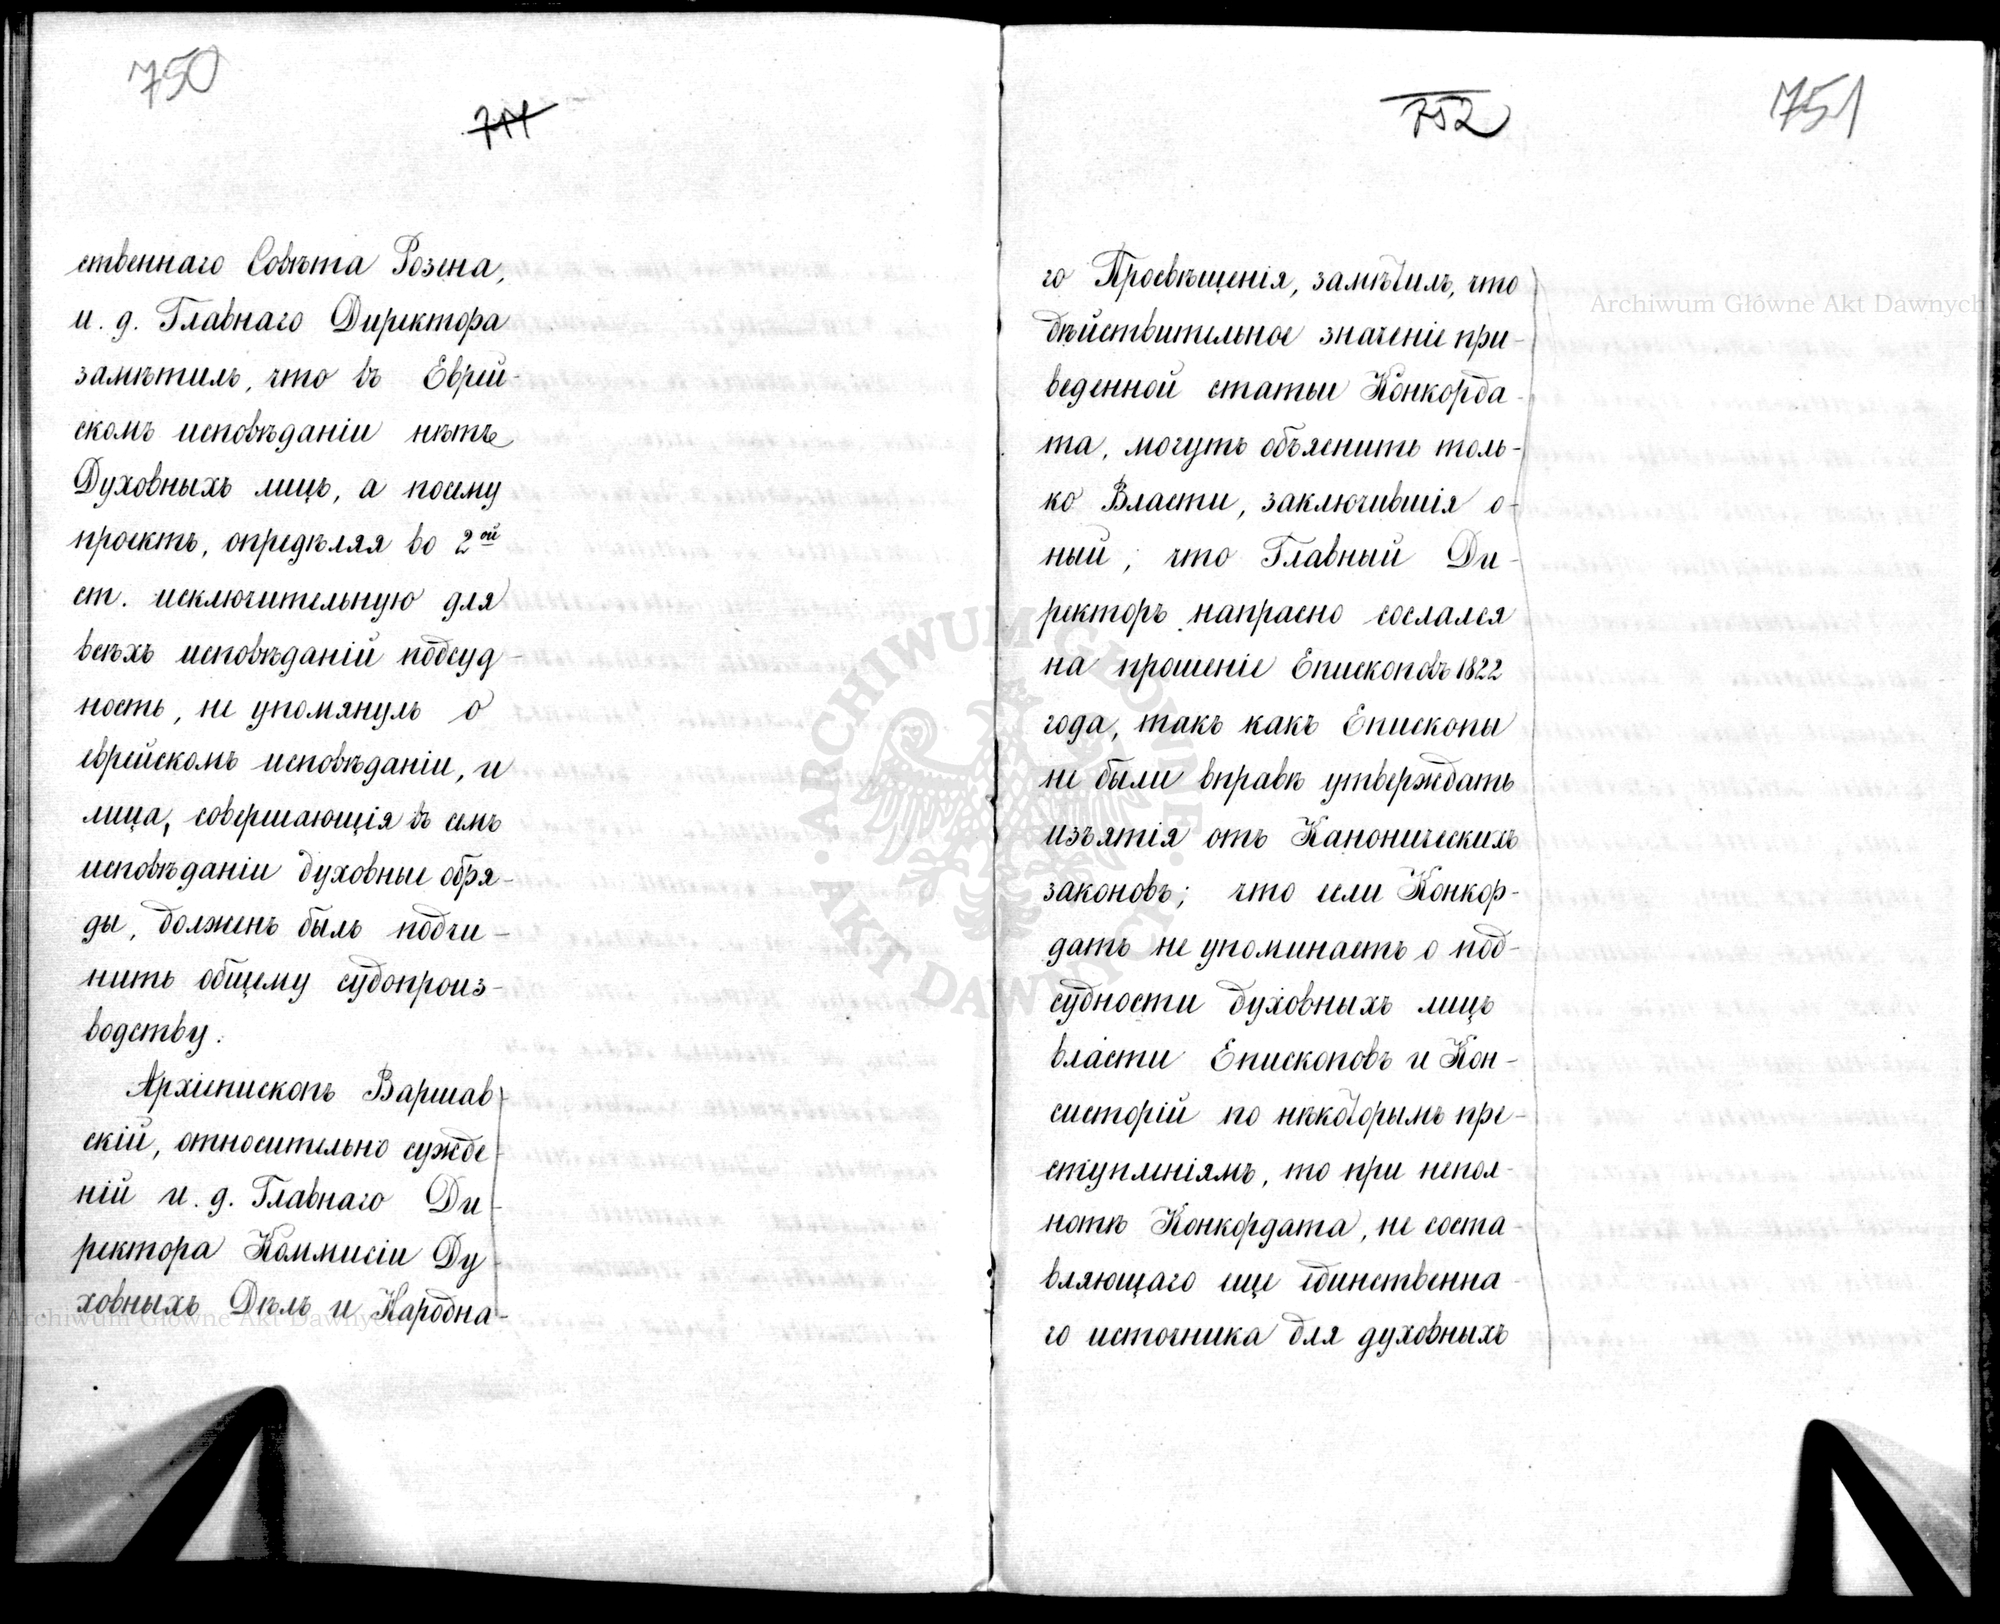 750
711
ственнаго Совѣта Розена,
и. д. Главнаго Директора
замѣтилъ, что въ Еврей-
скомъ исповѣданіи нѣтъ
Духовныхъ лицъ, а посему
проектъ, опредѣляя во 2ой
ст. исключительную для
всѣхъ исповѣданій подсуд-
ность, не упомянулъ о
еврейскомъ исповѣданіи, и
лица, совершающія въ семъ
исповѣданіи духовные обря-
ды, долженъ былъ подчи-
нить общему судопроиз-
водству.
Архіепископъ Варшав
скій, относительно сужде
ній и. д. Главнаго Ди
ректора Коммисіи Ду
ховныхъ Дѣлъ и Народна-
752
751
го Просвѣщенія, замѣтилъ, что
дѣйствительное значеніе при-
веденной статьи Конкорда-
та, могутъ объяснить толь-
ко Власти, заключившія о-
ный; что Главный Ди-
ректоръ напрасно сослался
на прошеніе Епископовъ 1822
года, такъ какъ Епископы
не были вправѣ утверждать
изъятія отъ Каноническихъ
законовъ; что если Конкор-
датъ не упоминаетъ о под-
судности духовныхъ лицъ
власти Епископовъ и Кон-
систорій по нѣкоторымъ пре-
ступленіямъ, то при непол-
нотѣ Конкордата, не соста-
вляющаго еще единственна-
го источника для духовныхъ
Archiwum Główne Akt Dawnych
Archiwum Główne Akt Dawnych
ARCHIWUM GŁÓWNE · AKT DAWNYCH ·